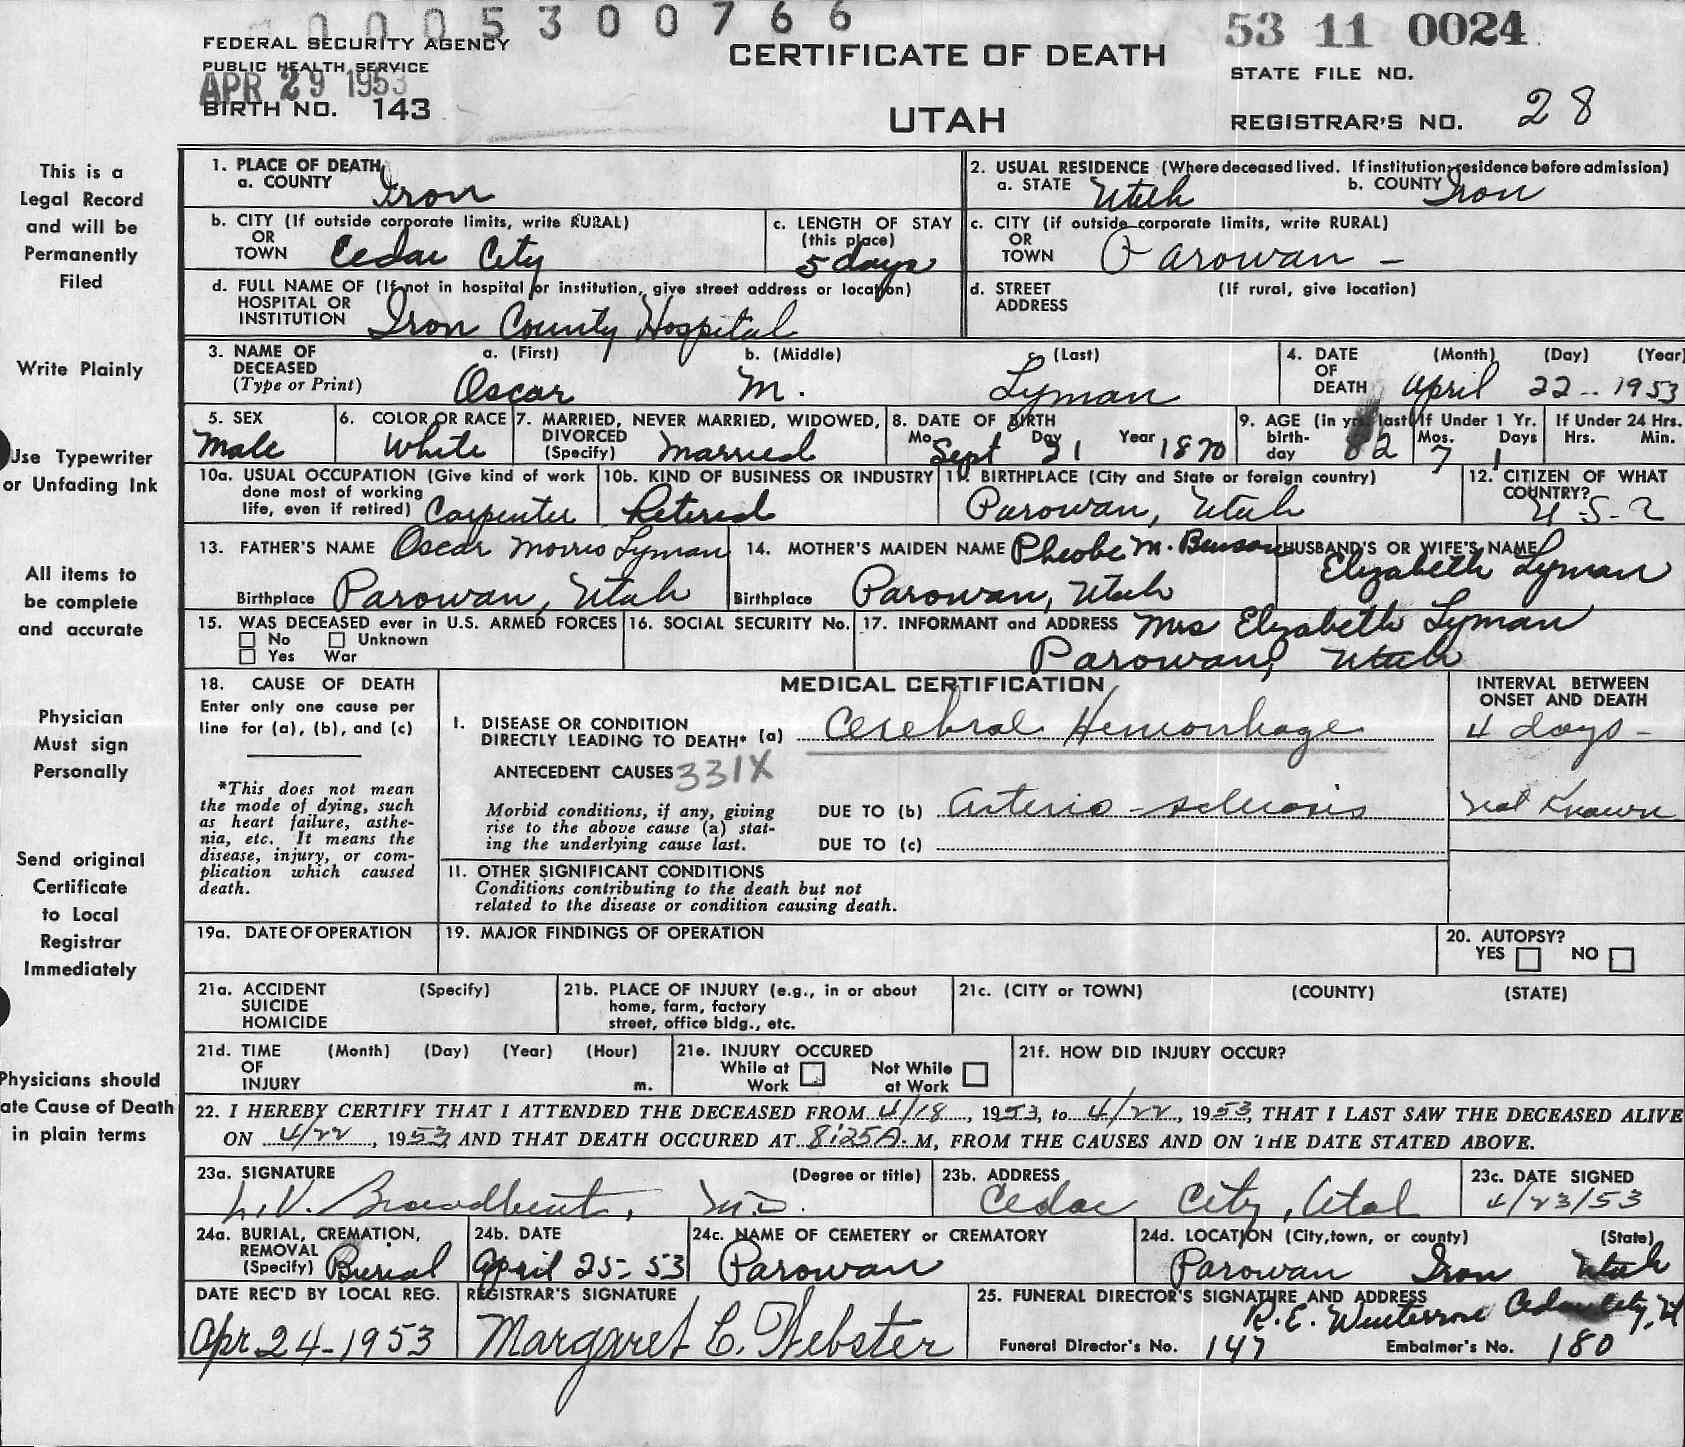 0005300766
53 11 0024
FEDERAL SECURITY AGENCY
PUBLIC HEALTH SERVICE
APR 29 1953
BIRTH NO. 143
CERTIFICATE OF DEATH
UTAH
STATE FILE NO.
REGISTRAR'S NO. 28
This is a
Legal Record
and will be
Permanently
Filed
Write Plainly
Use Typewriter
or Unfading Ink
All items to
be complete
and accurate
Physician
Must sign
Personally
Send original
Certificate
to Local
Registrar
Immediately
Physicians should
ate Cause of Death
in plain terms
1. PLACE OF DEATH
a. COUNTY Iron
2. USUAL RESIDENCE (Where deceased lived. If institution: residence before admission)
a. STATE Utah b. COUNTY Iron
b. CITY (If outside corporate limits, write RURAL)
OR
TOWN Cedar City
c. LENGTH OF STAY
(this place)
5 days
c. CITY (if outside corporate limits, write RURAL)
OR
TOWN Parowan -
d. FULL NAME OF (If not in hospital or institution, give street address or location)
HOSPITAL OR
INSTITUTION Iron County Hospital
d. STREET (If rural, give location)
ADDRESS
3. NAME OF DECEASED (Type or Print)
a. (First) b. (Middle) (Last)
Oscar M. Lyman
4. DATE OF DEATH (Month) (Day) (Year)
April 22-- 1953
5. SEX
Male
6. COLOR OR RACE
White
7. MARRIED, NEVER MARRIED, WIDOWED,
DIVORCED
(Specify) Married
8. DATE OF BIRTH
Mo Day Year
Sept 21 1870
9. AGE (in yrs. last birth-day 82
If Under 1 Yr.
Mos. Days
7 1
If Under 24 Hrs.
Hrs. Min.
10a. USUAL OCCUPATION (Give kind of work
done most of working
life, even if retired) Carpenter
10b. KIND OF BUSINESS OR INDUSTRY
Retired
11. BIRTHPLACE (City and State or foreign country)
Parowan, Utah
12. CITIZEN OF WHAT
COUNTRY?
U-S-
13. FATHER'S NAME Oscar Morris Lyman
Birthplace Parowan, Utah
14. MOTHER'S MAIDEN NAME Pheobe M. Benson
Birthplace Parowan, Utah
HUSBAND'S OR WIFE'S NAME
Elizabeth Lyman
15. WAS DECEASED ever in U.S. ARMED FORCES
No Unknown
Yes War
16. SOCIAL SECURITY No.
17. INFORMANT and ADDRESS Mrs Elizabeth Lyman
Parowan, Utah
18. CAUSE OF DEATH
Enter only one cause per
line for (a), (b), and (c)
*This does not mean
the mode of dying, such
as heart failure, asthe-
nia, etc. It means the
disease, injury, or com-
plication which caused
death.
MEDICAL CERTIFICATION
I. DISEASE OR CONDITION
DIRECTLY LEADING TO DEATH* (a) Cerebral Hemorrhage
ANTECEDENT CAUSES 331X
Morbid conditions, if any, giving
rise to the above cause (a) stat-
ing the underlying cause last.
DUE TO (b) arterio-sclerosis
DUE TO (c)
INTERVAL BETWEEN
ONSET AND DEATH
4 days -
Not Known
11. OTHER SIGNIFICANT CONDITIONS
Conditions contributing to the death but not
related to the disease or condition causing death.
19a. DATE OF OPERATION
19. MAJOR FINDINGS OF OPERATION
20. AUTOPSY?
YES NO
21a. ACCIDENT (Specify)
SUICIDE
HOMICIDE
21b. PLACE OF INJURY (e.g., in or about
home, farm, factory
street, office bldg., etc.
21c. (CITY or TOWN) (COUNTY) (STATE)
21d. TIME (Month) (Day) (Year) (Hour)
OF
INJURY m.
21e. INJURY OCCURED
While at Work Not While at Work
21f. HOW DID INJURY OCCUR?
22. I HEREBY CERTIFY THAT I ATTENDED THE DECEASED FROM 4/18, 1953, to 4/22, 1953, THAT I LAST SAW THE DECEASED ALIVE
ON 4/22, 1953 AND THAT DEATH OCCURED AT 8:25A. M, FROM THE CAUSES AND ON THE DATE STATED ABOVE.
23a. SIGNATURE (Degree or title)
L.V. Broadbent, M.D.
23b. ADDRESS
Cedar City, Utah
23c. DATE SIGNED
4/23/53
24a. BURIAL, CREMATION,
REMOVAL
(Specify) Burial
24b. DATE
April 25-53
24c. NAME OF CEMETERY OR CREMATORY
Parowan
24d. LOCATION (City, town, or county) (State)
Parowan Iron Utah
DATE REC'D BY LOCAL REG.
Apr 24-1953
REGISTRAR'S SIGNATURE
Margaret C. Webster
25. FUNERAL DIRECTOR'S SIGNATURE AND ADDRESS
R.E. Winterrose Cedar City, Ut
Funeral Director's No. 147 Embalmer's No. 180